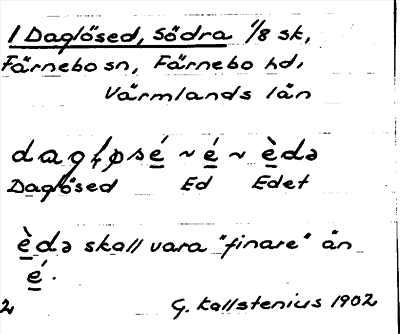 1 Daglösed, Södra 1/8 sk,
Färnebo sn, Färnebo hd,
Värmlands län
daglø̀sé̱ ~ é̱ ~ è̱də
Daglösed Ed Edet
è̱də skall vara "finare" än
é̱.
2 G. Kallstenius 1902